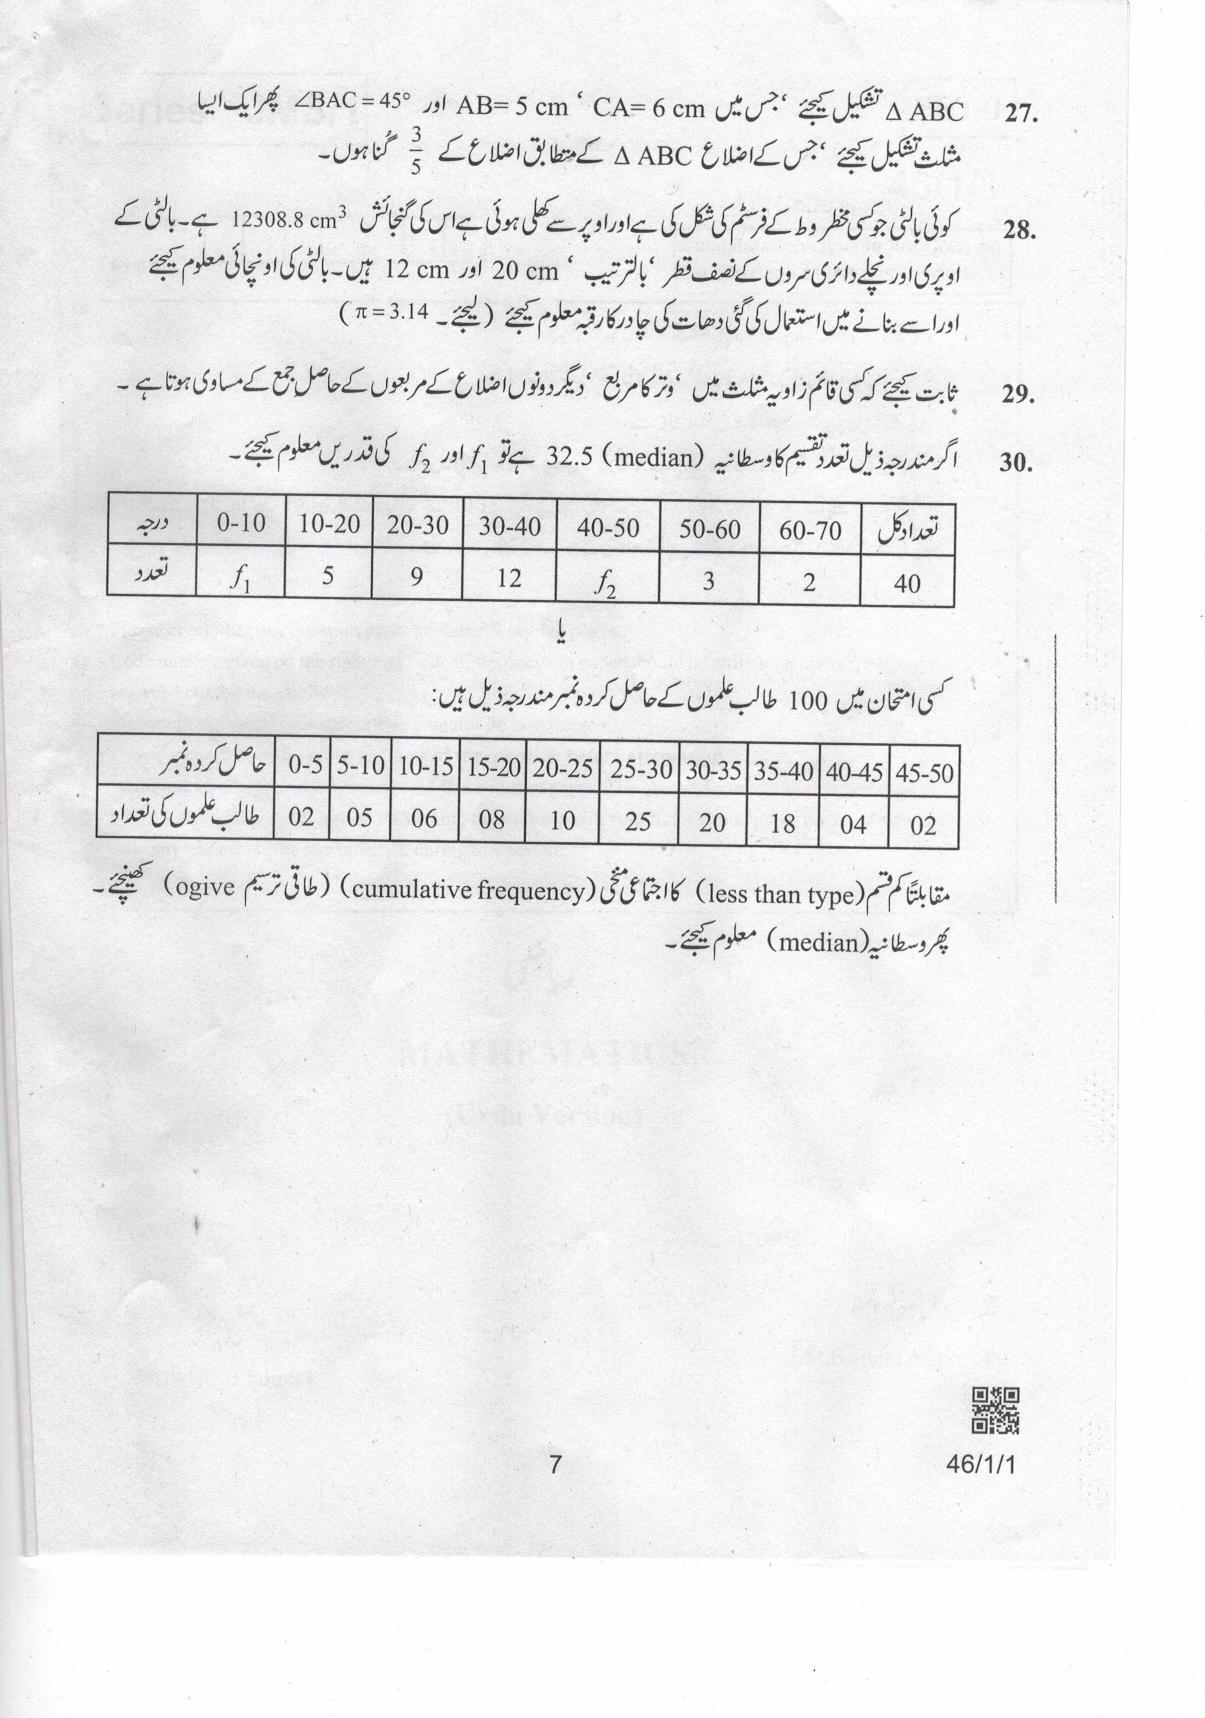 27. Δ ABC تشکیل کیجئے ‘جس میں AB= 5 cm ‘ CA= 6 cm اور ∠BAC = 45° پھر ایک ایسا
مثلث تشکیل کیجئے ‘جس کے اضلاع Δ ABC کے متطابق اضلاع کے 3/5 گنا ہوں۔
28. کوئی بالٹی جو کسی مخطروط کے فرسٹم کی شکل کی ہے اور اوپر سے کھلی ہوئی ہے اس کی گنجائش 12308.8 cm³ ہے۔ بالٹی کے
اوپری اور نچلے دائری سروں کے نصف قطر ‘بالترتیب ‘ 20 cm اور 12 cm ہیں۔ بالٹی کی اونچائی معلوم کیجئے
اور اسے بنانے میں استعمال کی گئی دھات کی چادر کا رقبہ معلوم کیجئے (لیجئے۔ π = 3.14)
29. ثابت کیجئے کہ کسی قائم زاویہ مثلث میں ‘وتر کا مربع ‘دیگر دونوں اضلاع کے مربعوں کے حاصل جمع کے مساوی ہوتا ہے۔
30. اگر مندرجہ ذیل تعدد تقسیم کا وسطانیہ (median) 32.5 ہے تو f₁ اور f₂ کی قدریں معلوم کیجئے۔
درجہ 0-10 10-20 20-30 30-40 40-50 50-60 60-70 تعداد کل
تعدد f₁ 5 9 12 f₂ 3 2 40
یا
کسی امتحان میں 100 طالب علموں کے حاصل کردہ نمبر مندرجہ ذیل ہیں:
حاصل کردہ نمبر 0-5 5-10 10-15 15-20 20-25 25-30 30-35 35-40 40-45 45-50
طالب علموں کی تعداد 02 05 06 08 10 25 20 18 04 02
مقابلتاً کم قسم (less than type) کا اجتماعی منحنی (cumulative frequency) (طاقی ترسیم ogive) کھینچئے۔
پھر وسطانیہ (median) معلوم کیجئے۔
7
46/1/1